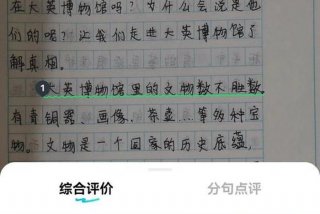 在大英博物馆吗？为什么会说是他
们的呢？让我们走进大英博物馆了
解真相。
1
大英博物馆里的文物数不胜数，
有青铜器、画像、茶壶…等多种宝
物。文物是一个国家的历史底蕴，
综合评价
分句点评